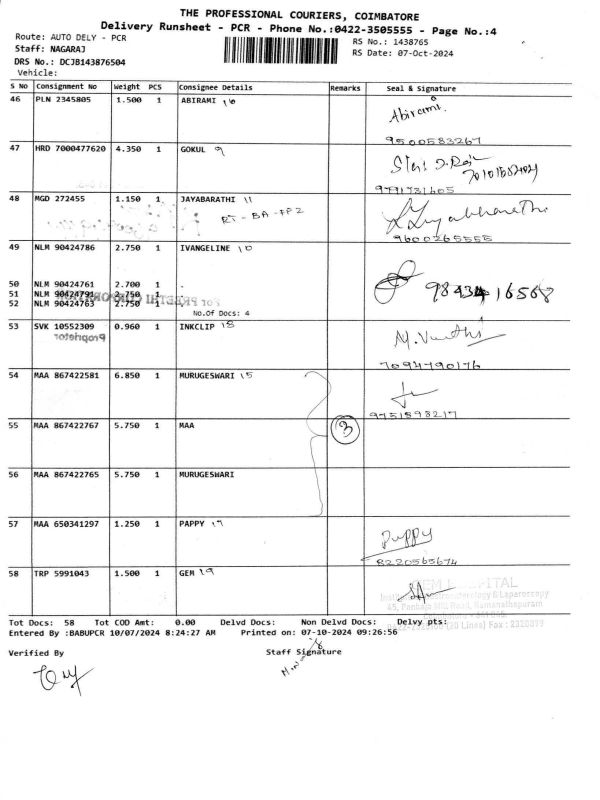 THE PROFESSIONAL COURIERS, COIMBATORE
Delivery Runsheet - PCR - Phone No.:0422-3505555 - Page No.:4
Route: AUTO DELY - PCR
RS No.: 1438765
Staff: NAGARAJ
RS Date: 07-Oct-2024
DRS No.: DCJB143876504
Vehicle:
S No Consignment No Weight PCS Consignee Details Remarks Seal & Signature
46 PLN 2345805 1.500 1 ABIRAMI 16
Abirami
9500583267
47 HRD 7000477620 4.350 1 GOKUL 9
9791731605
48 MGD 272455 1.150 1 JAYABARATHI 11
RT - BA - FP2
9600265555
49 NLM 90424786 2.750 1 IVANGELINE 10
50 NLM 90424761 2.700 1 .
51 NLM 90424791 2.750 1 .
52 NLM 90424763 2.750 1 .
No.Of Docs: 4
53 SVK 10552309 0.960 1 INKCLIP 18
Proprietor
7094790176
54 MAA 867422581 6.850 1 MURUGESWARI 15
9751598217
55 MAA 867422767 5.750 1 MAA
3
56 MAA 867422765 5.750 1 MURUGESWARI
57 MAA 650341297 1.250 1 PAPPY 17
Pappy
8220565674
58 TRP 5991043 1.500 1 GEM 19
GEM HOSPITAL
45, Pankaja Mill Road, Ramanathapuram
Tot Docs: 58 Tot COD Amt: 0.00 Delvd Docs: Non Delvd Docs: Delvy pts:
Entered By :BABUPCR 10/07/2024 8:24:27 AM Printed on: 07-10-2024 09:26:56
Verified By Staff Signature